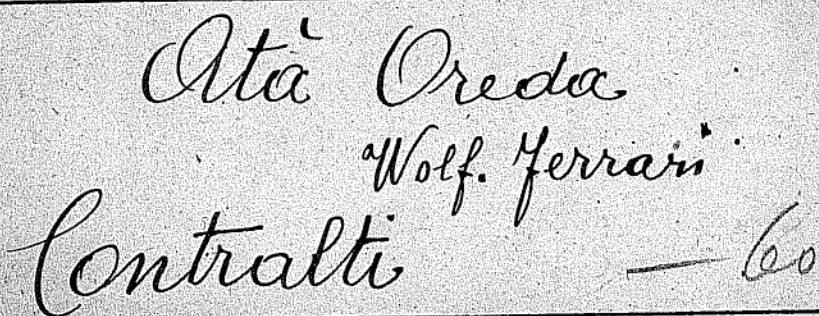 Atà Oreda
Wolf. Ferrari
Contralti — 60